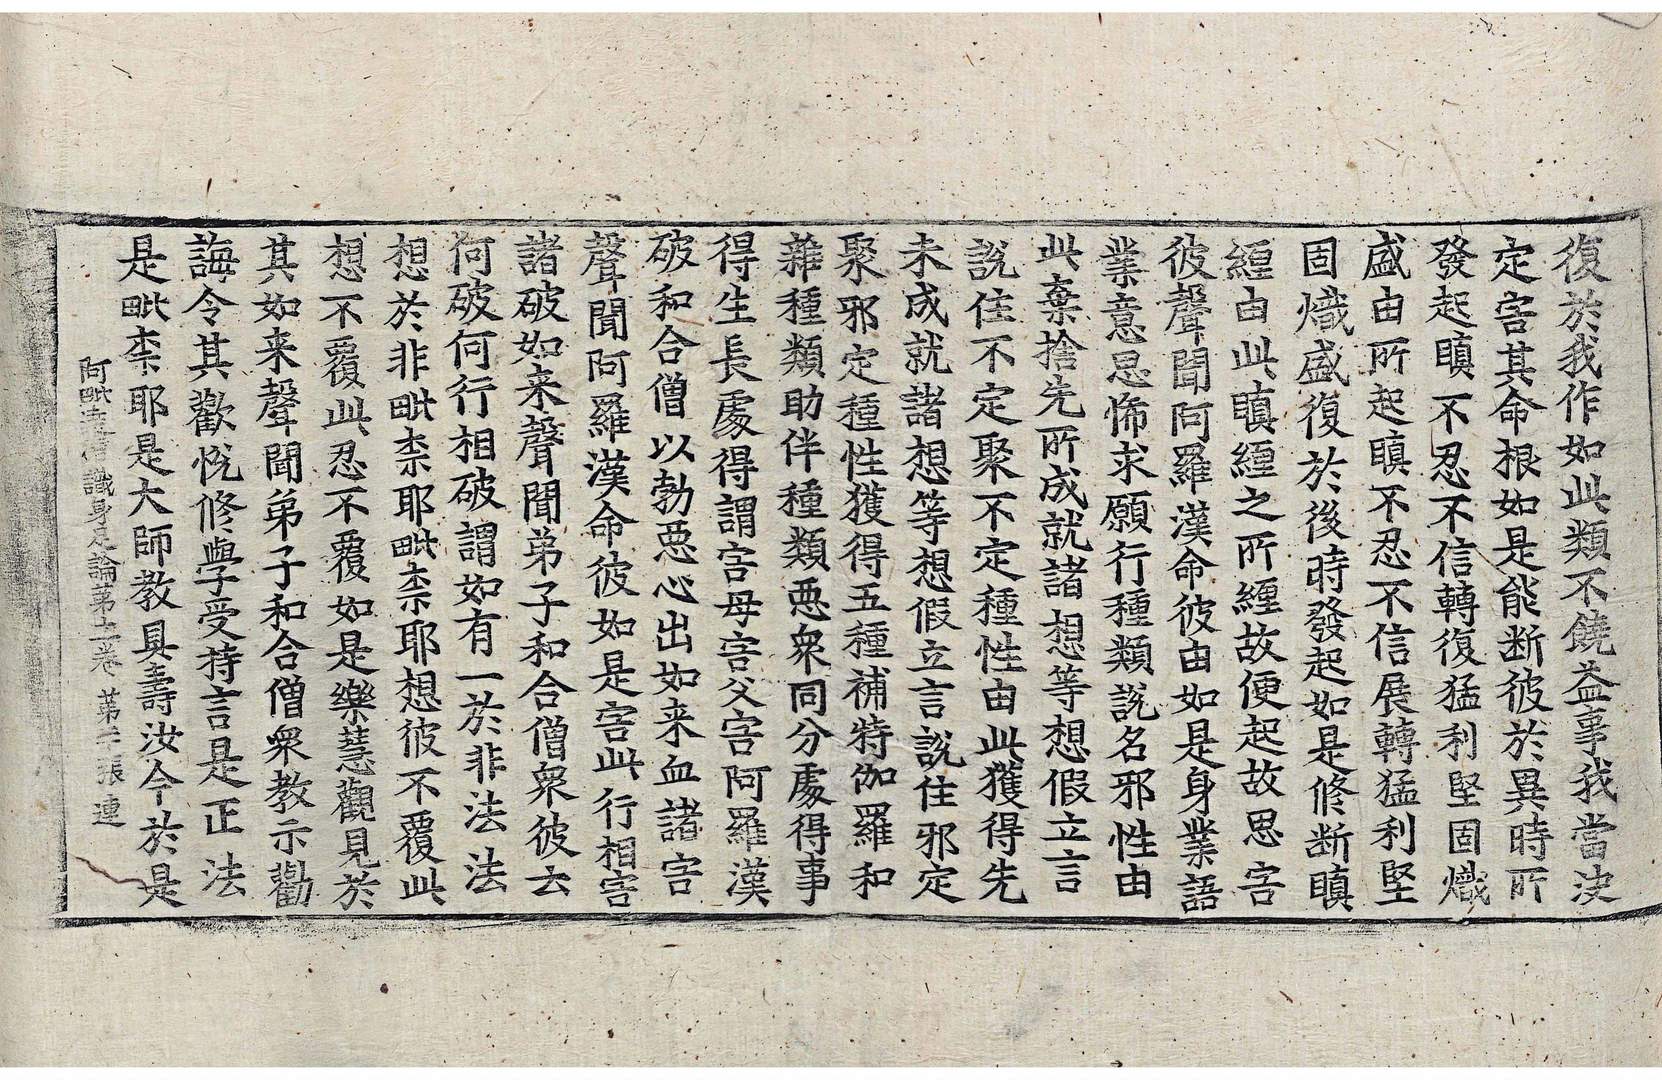 復於我作如此類不饒益事我當決
定害其命根如是能断彼於異時所
發起瞋不忍不信轉復猛利堅固熾
盛由所起瞋不忍不信展轉猛利堅
固熾盛復於後時發起如是修断瞋
纏由此瞋纏之所纏故便起故思害
彼聲聞阿羅漢命彼由如是身業語
業意思怖求願行種類說名邪性由
此棄捨先所成就諸想等想假立言
說住不定聚不定種性由此獲得先
未成就諸想等想假立言說住邪定
聚邪定種性獲得五種補特伽羅和
雜種類助伴種類惡衆同分處得事
得生長處得謂害母害父害阿羅漢
破和合僧以勃惡心出如来血諸害
聲聞阿羅漢命彼如是害此行相害
諸破如来聲聞弟子和合僧衆彼云
何破何行相破謂如有一於非法法
想於非毗柰耶毗柰耶想彼不覆此
想不覆此忍不覆如是樂慧觀見於
其如来聲聞弟子和合僧衆教示勸
誨令其歡悅修學受持言是正法
是毗柰耶是大師教具壽汝今於是
阿毗達磨識身足論第二卷 第二張 連